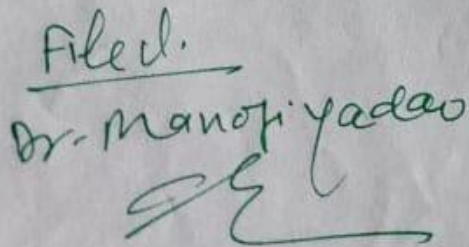 Filed.
Dr. Manoji Yadao